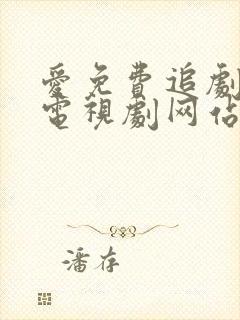 愛免費追劇
電視劇网佔
潘存